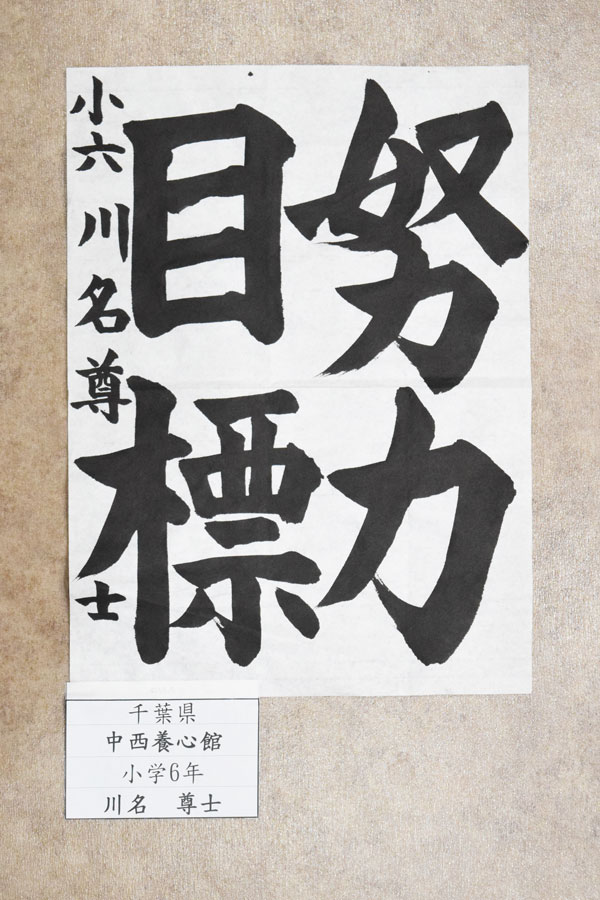 努力
目標
小六 川名尊士
千葉県
中西養心館
小学6年
川名 尊士